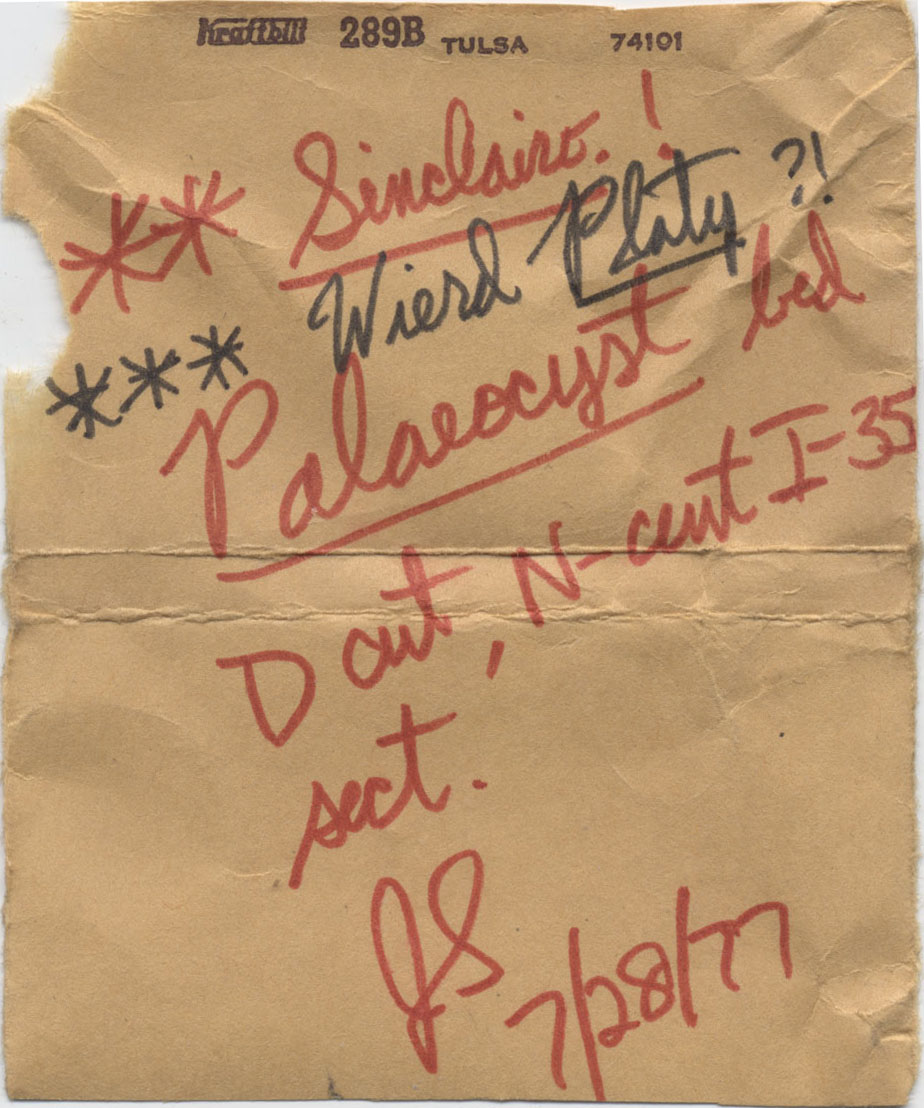 Kraftbilt 289B TULSA 74101
** Sinclairo. !
*** Wierd Platy ?!
Palaeocyst bed
D cut, N-cent I-35
sect.
JS 7/28/77